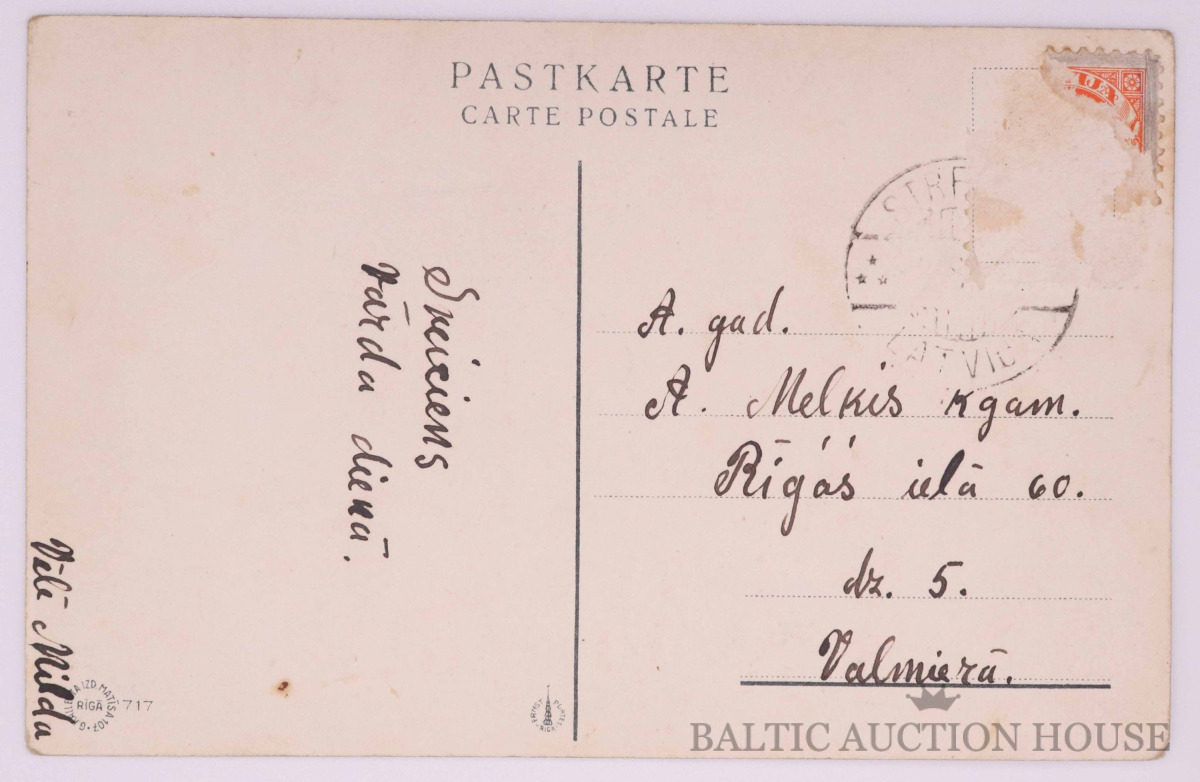 PASTKARTE
CARTE POSTALE
Sveiciens
vārda dienā.
Vēlē Milda
A. god.
A. Melķis kgam.
Rīgās ielā 60.
dz. 5.
Valmierā.
LATVIJ
RĪGĀ
717
BALTIC AUCTION HOUSE